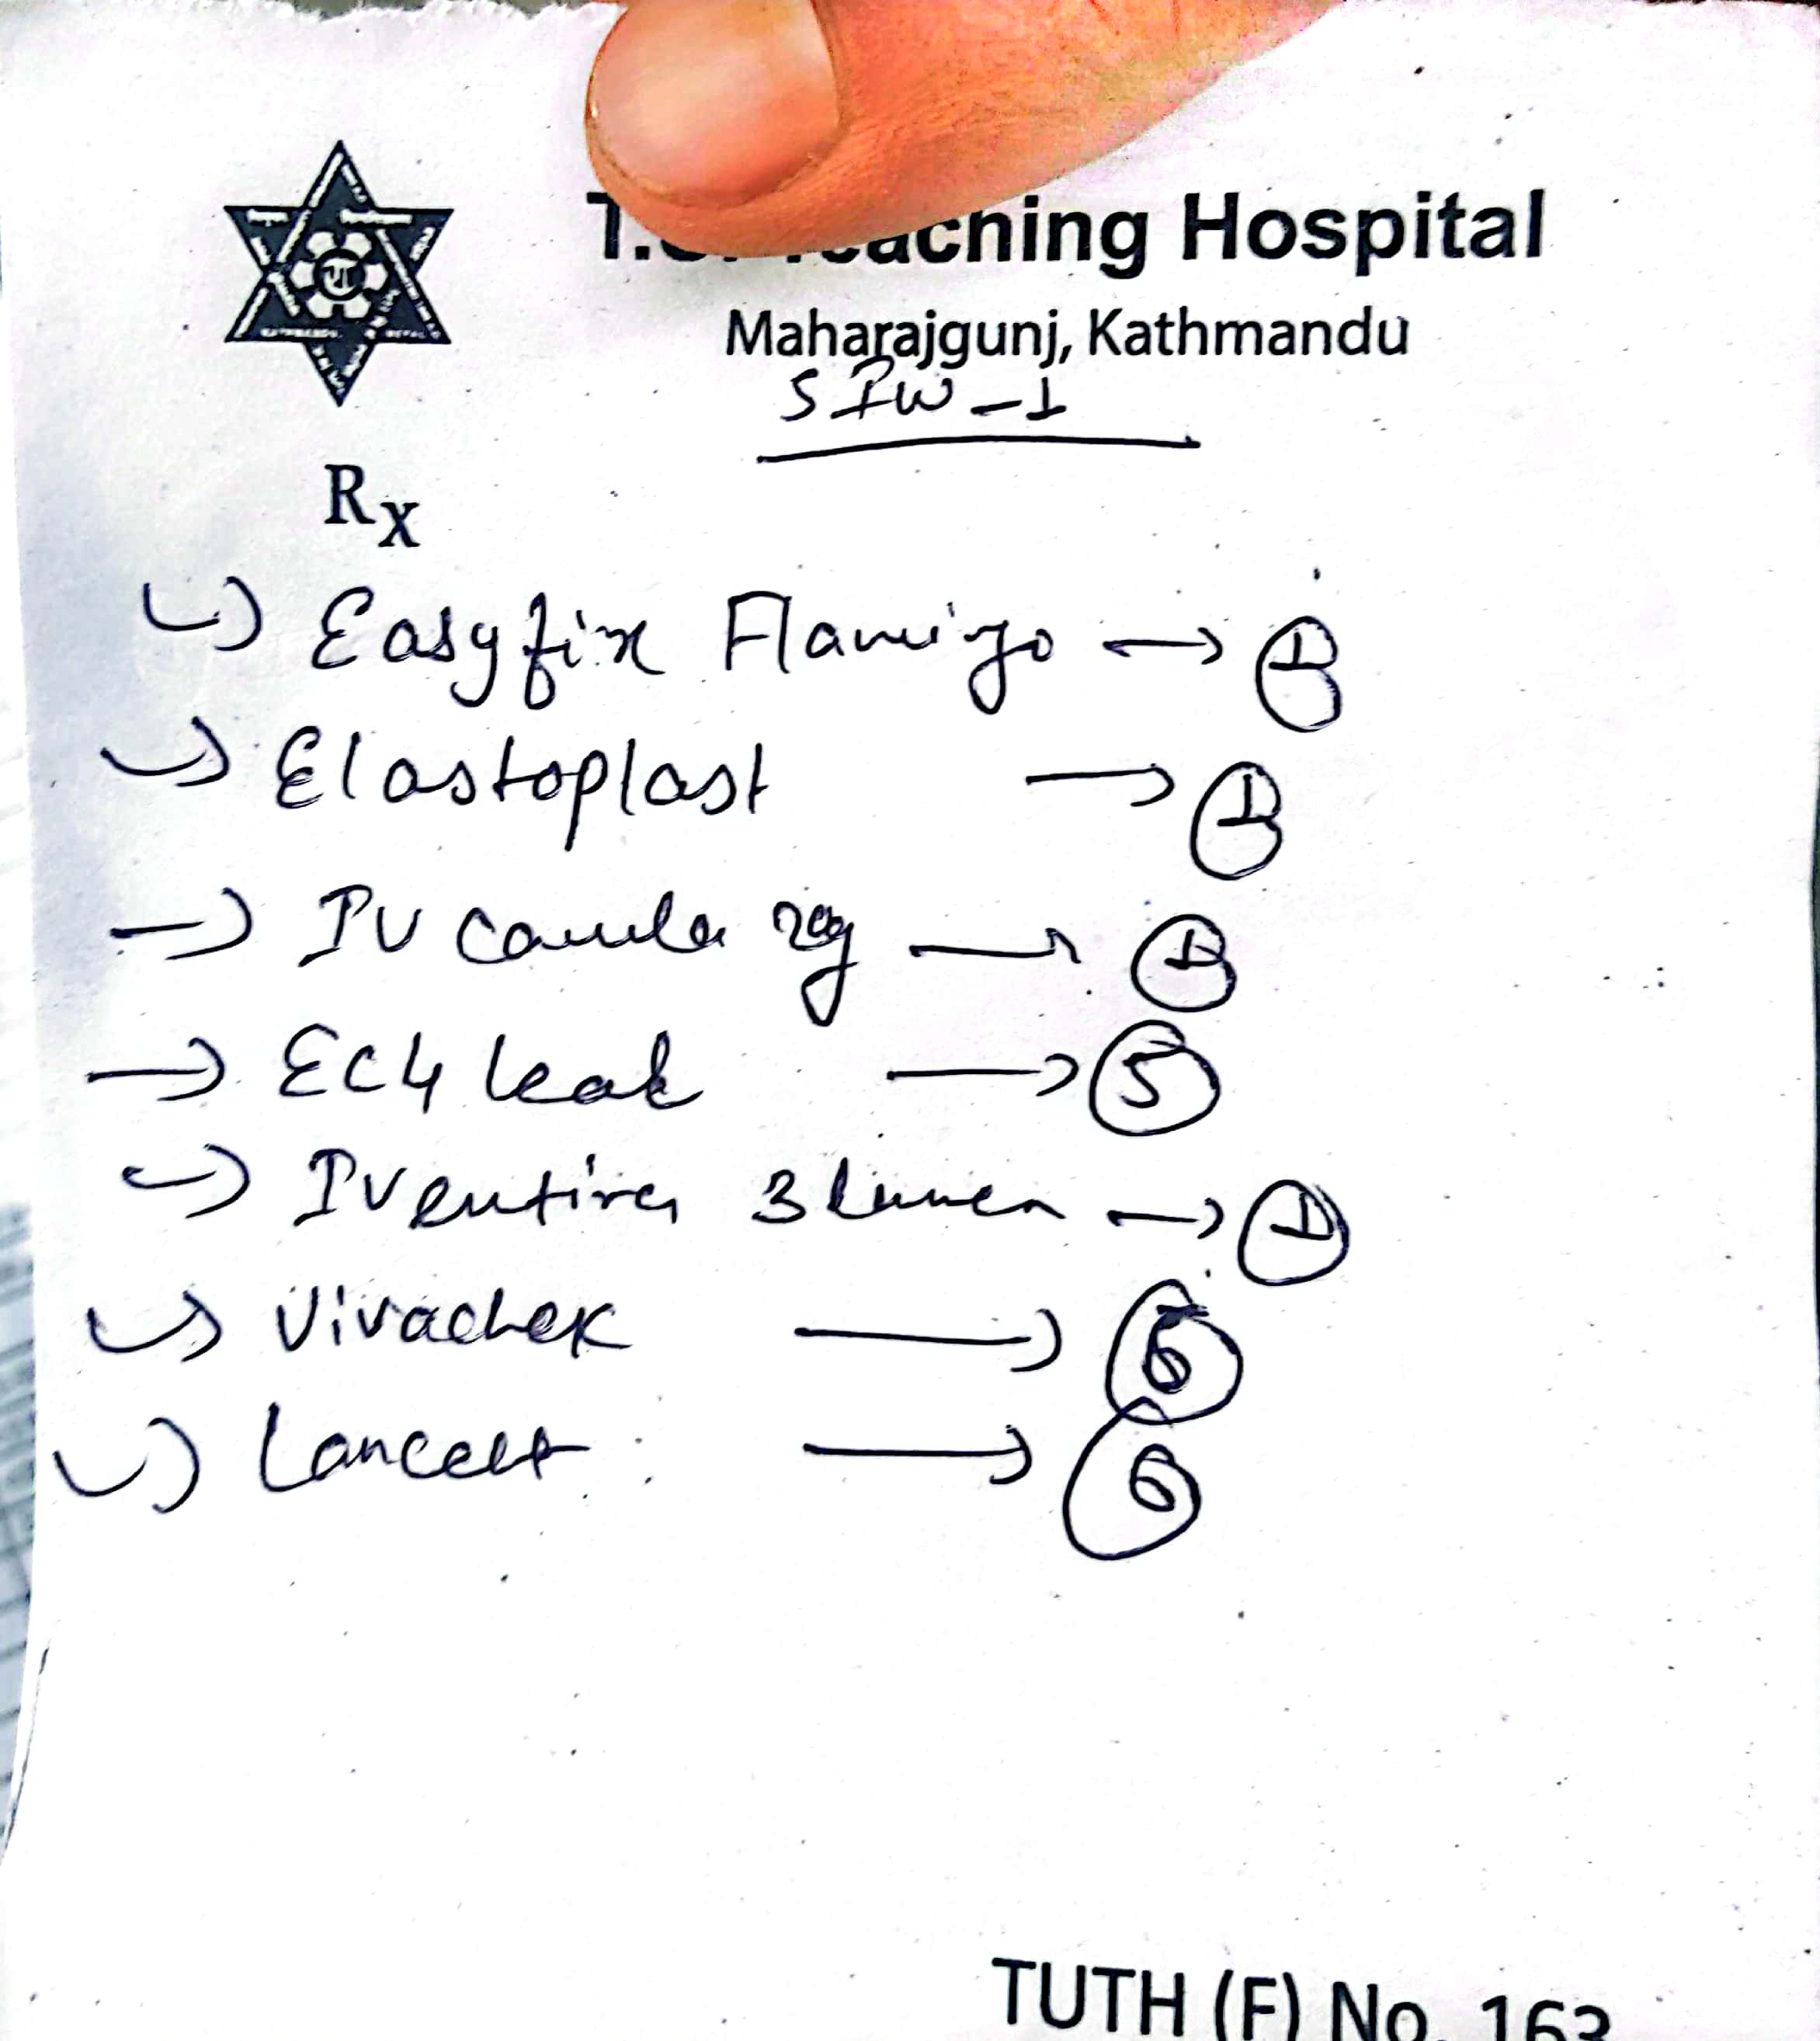 T.U. Teaching Hospital
Maharajgunj, Kathmandu
SIW-1
Rx
Easyfix Flamingo → 1
Elastoplast → 1
IV canula 20g → 1
ECG leak → 5
IV 3 lumen → 1
Vivachek → 6
Lancett → 6
TUTH (F) No. 163